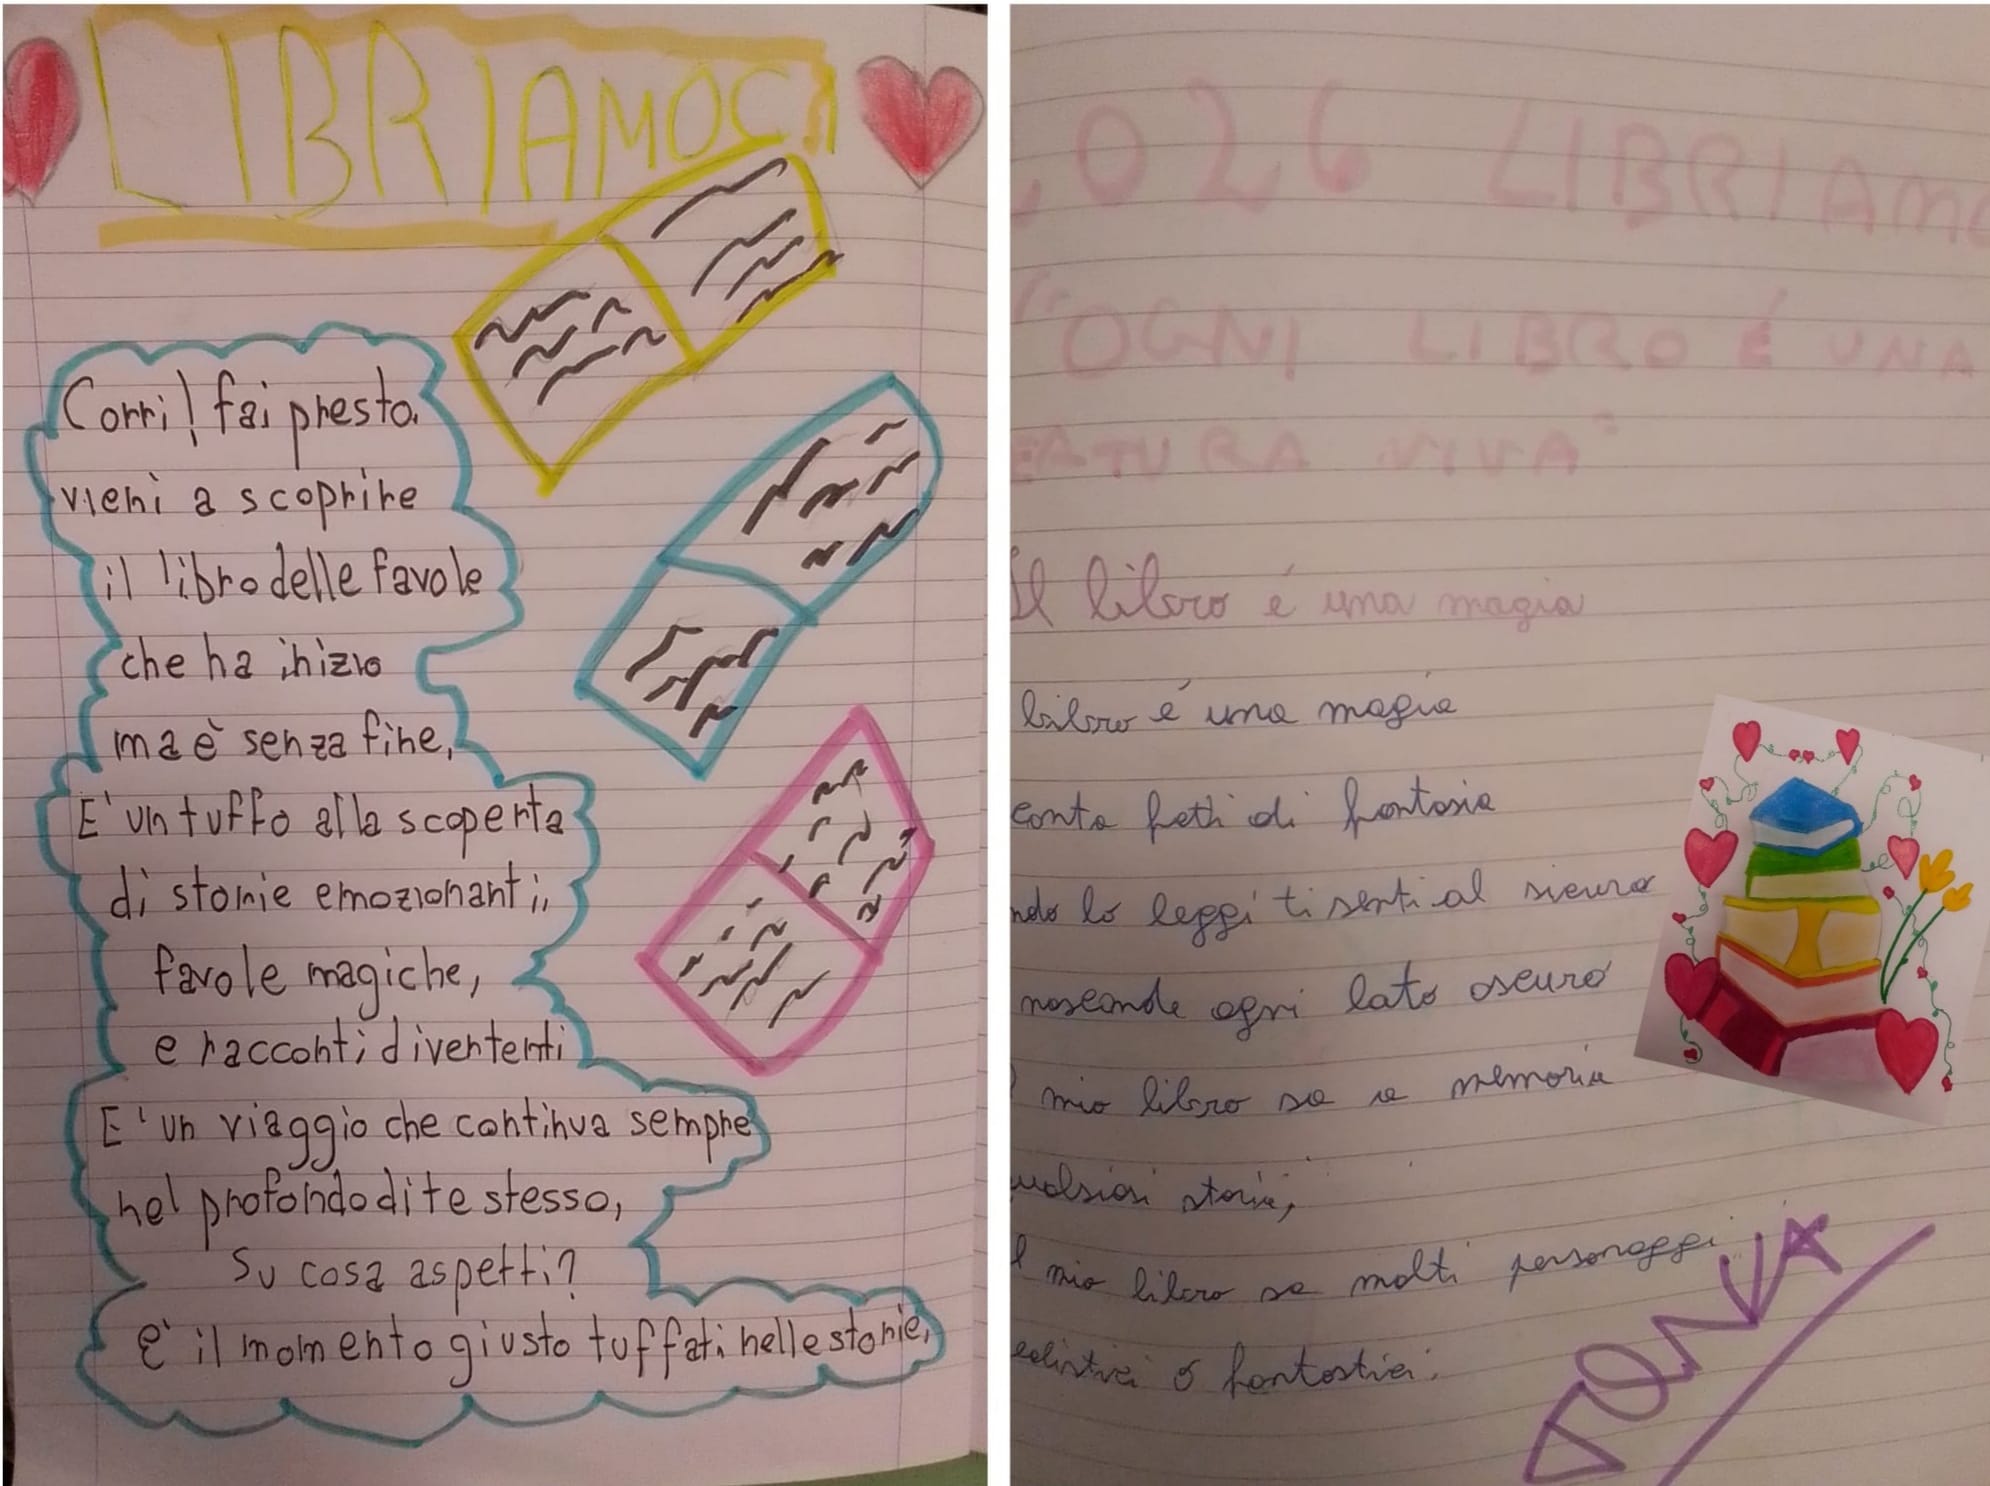 LIBRIAMOCI
Corri! fai presto.
vieni a scoprire
il libro delle favole
che ha inizio
ma è senza fine,
E' un tuffo alla scoperta
di storie emozionanti,,
favole magiche,
e racconti divertenti
E' un viaggio che continua sempre
nel profondo di te stesso,
Su cosa aspetti?
E' il momento giusto tuffati nelle storie,
2026 LIBRIAMO
"OGNI LIBRO É UNA
EATURA VIVA"
Il libro é una magia
libro é una magia
conta fatti di fantasia
ndo lo leggi ti senti al sicuro
nasconde ogni lato oscuro
mio libro sa a memoria
ualsiasi storia,
l mio libro sa molti personaggi
ealistici o fantastici.